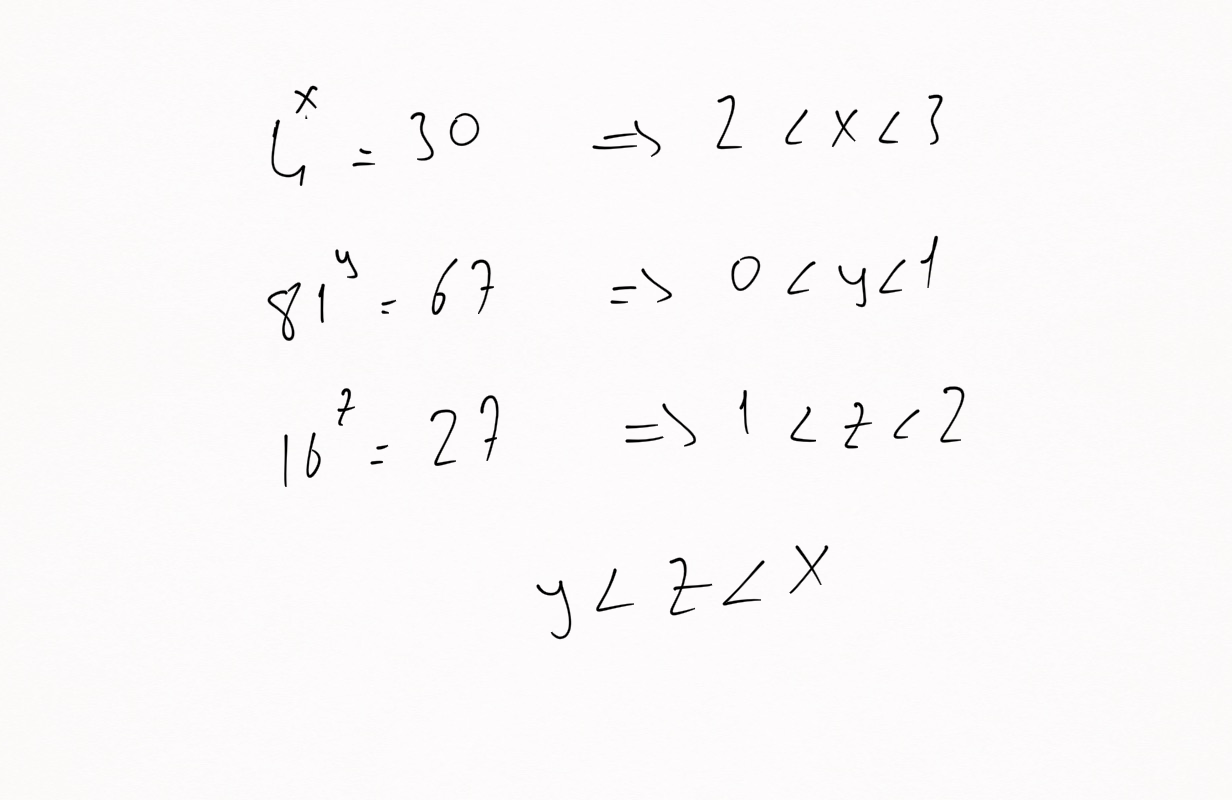 4^x = 30 => 2 < x < 3
81^y = 67 => 0 < y < 1
16^z = 27 => 1 < z < 2
y < z < x